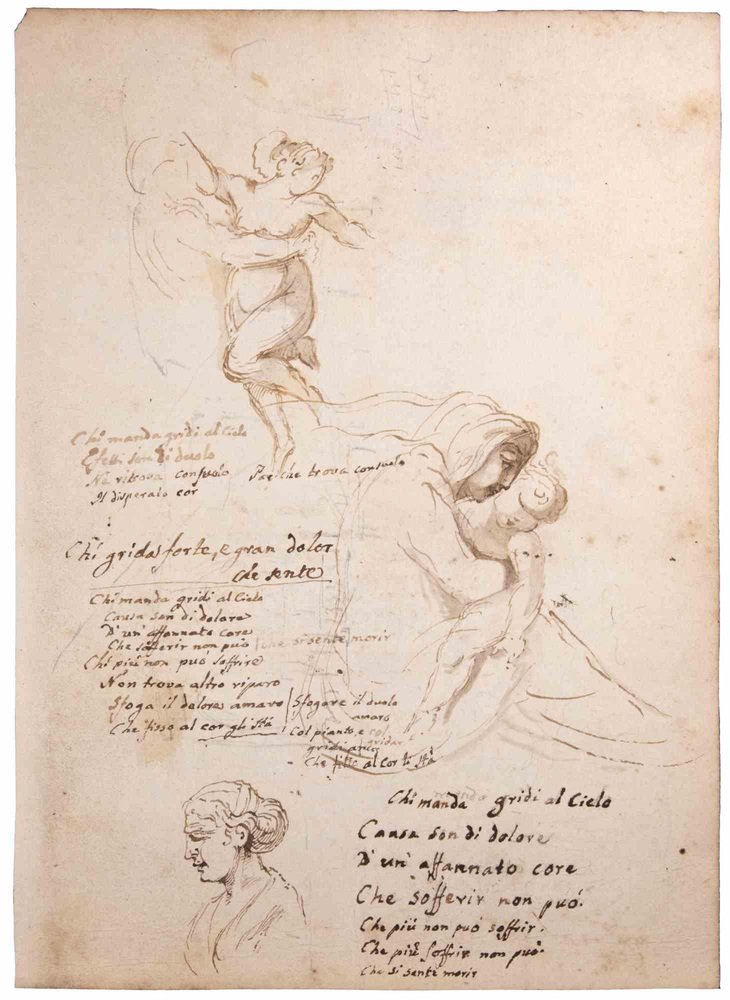 Chi manda gridi al Cielo
Effetti son di duolo
Ne ritrova consuolo
Il disperato cor
Par che trova consuolo
Chi grida forte, e gran dolor
che sente
Chi manda gridi al Cielo
Causa son di dolore
D'un' affannato core
Che sofferir non può
che si sente morir
Chi piiú non puó soffrire
Non trova altro riparo
Sfoga il dolore amaro
Che fisso al cor gli stá
Sfogare il duolo
amaro
Col pianto e col
gridar
gridi
Che fitto al cor ti stá
Chi manda gridi al Cielo
Causa son di dolore
D'un' affannato core
Che sofferir non puó.
Che piiú non puó soffrir.
Che piiú soffrir non puó.
Che si sente morir